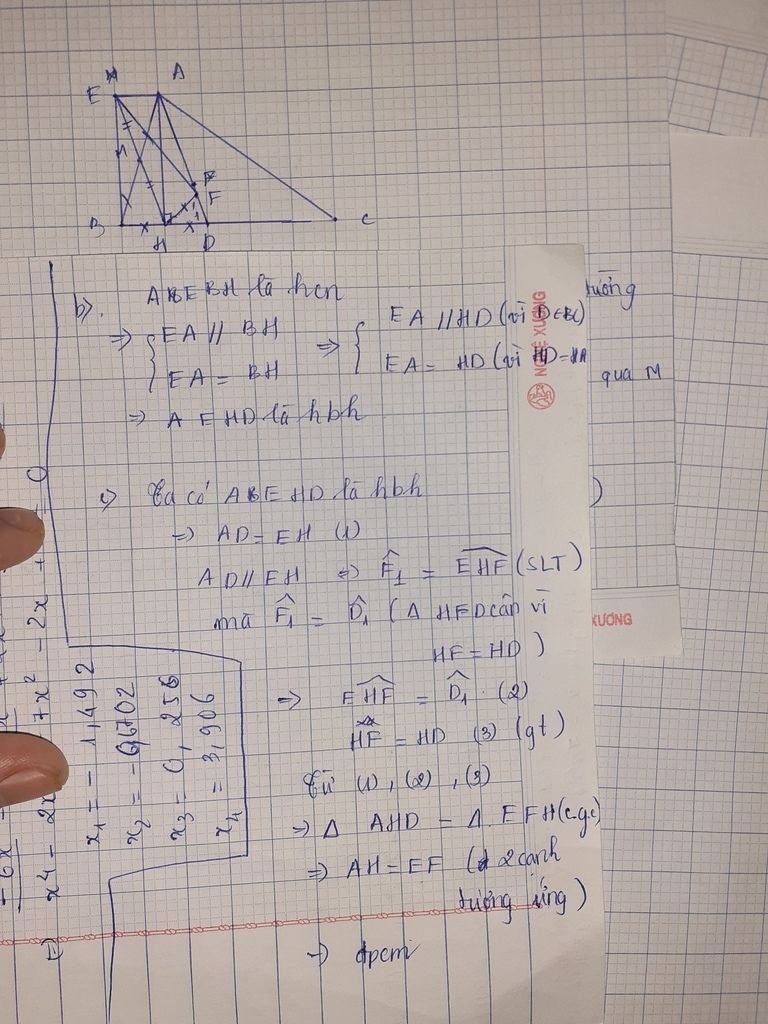 E A
M
F
F
1
1
B H D C
b). AEBH là hcn
⇒ { EA // BH
EA = BH
⇒ { EA // HD (vì D ∈ BC)
EA = HD (vì HD = HA
⇒ AEHD là hbh
c) Ta có AEHD là hbh
⇒ AD = EH (1)
AD // EH ⇒ F̂₁ = EHF (SLT)
mà F̂₁ = D̂₁ (Δ HFD cân vì
HF = HD)
⇒ EHF = D̂₁. (2)
HF = HD (3) (gt)
Từ (1), (2), (3)
⇒ Δ AHD = Δ EFH (c.g.c)
⇒ AH = EF (2 cạnh
tương ứng)
→ đpcm
qua M
)
NGHỆ XƯƠNG
XƯƠNG
7x² - 2x + = 0
x₁ = -1,492
x₂ = -0,6702
x₃ = 0,256
x₄ = 3,906
-6x
x⁴ - 2x